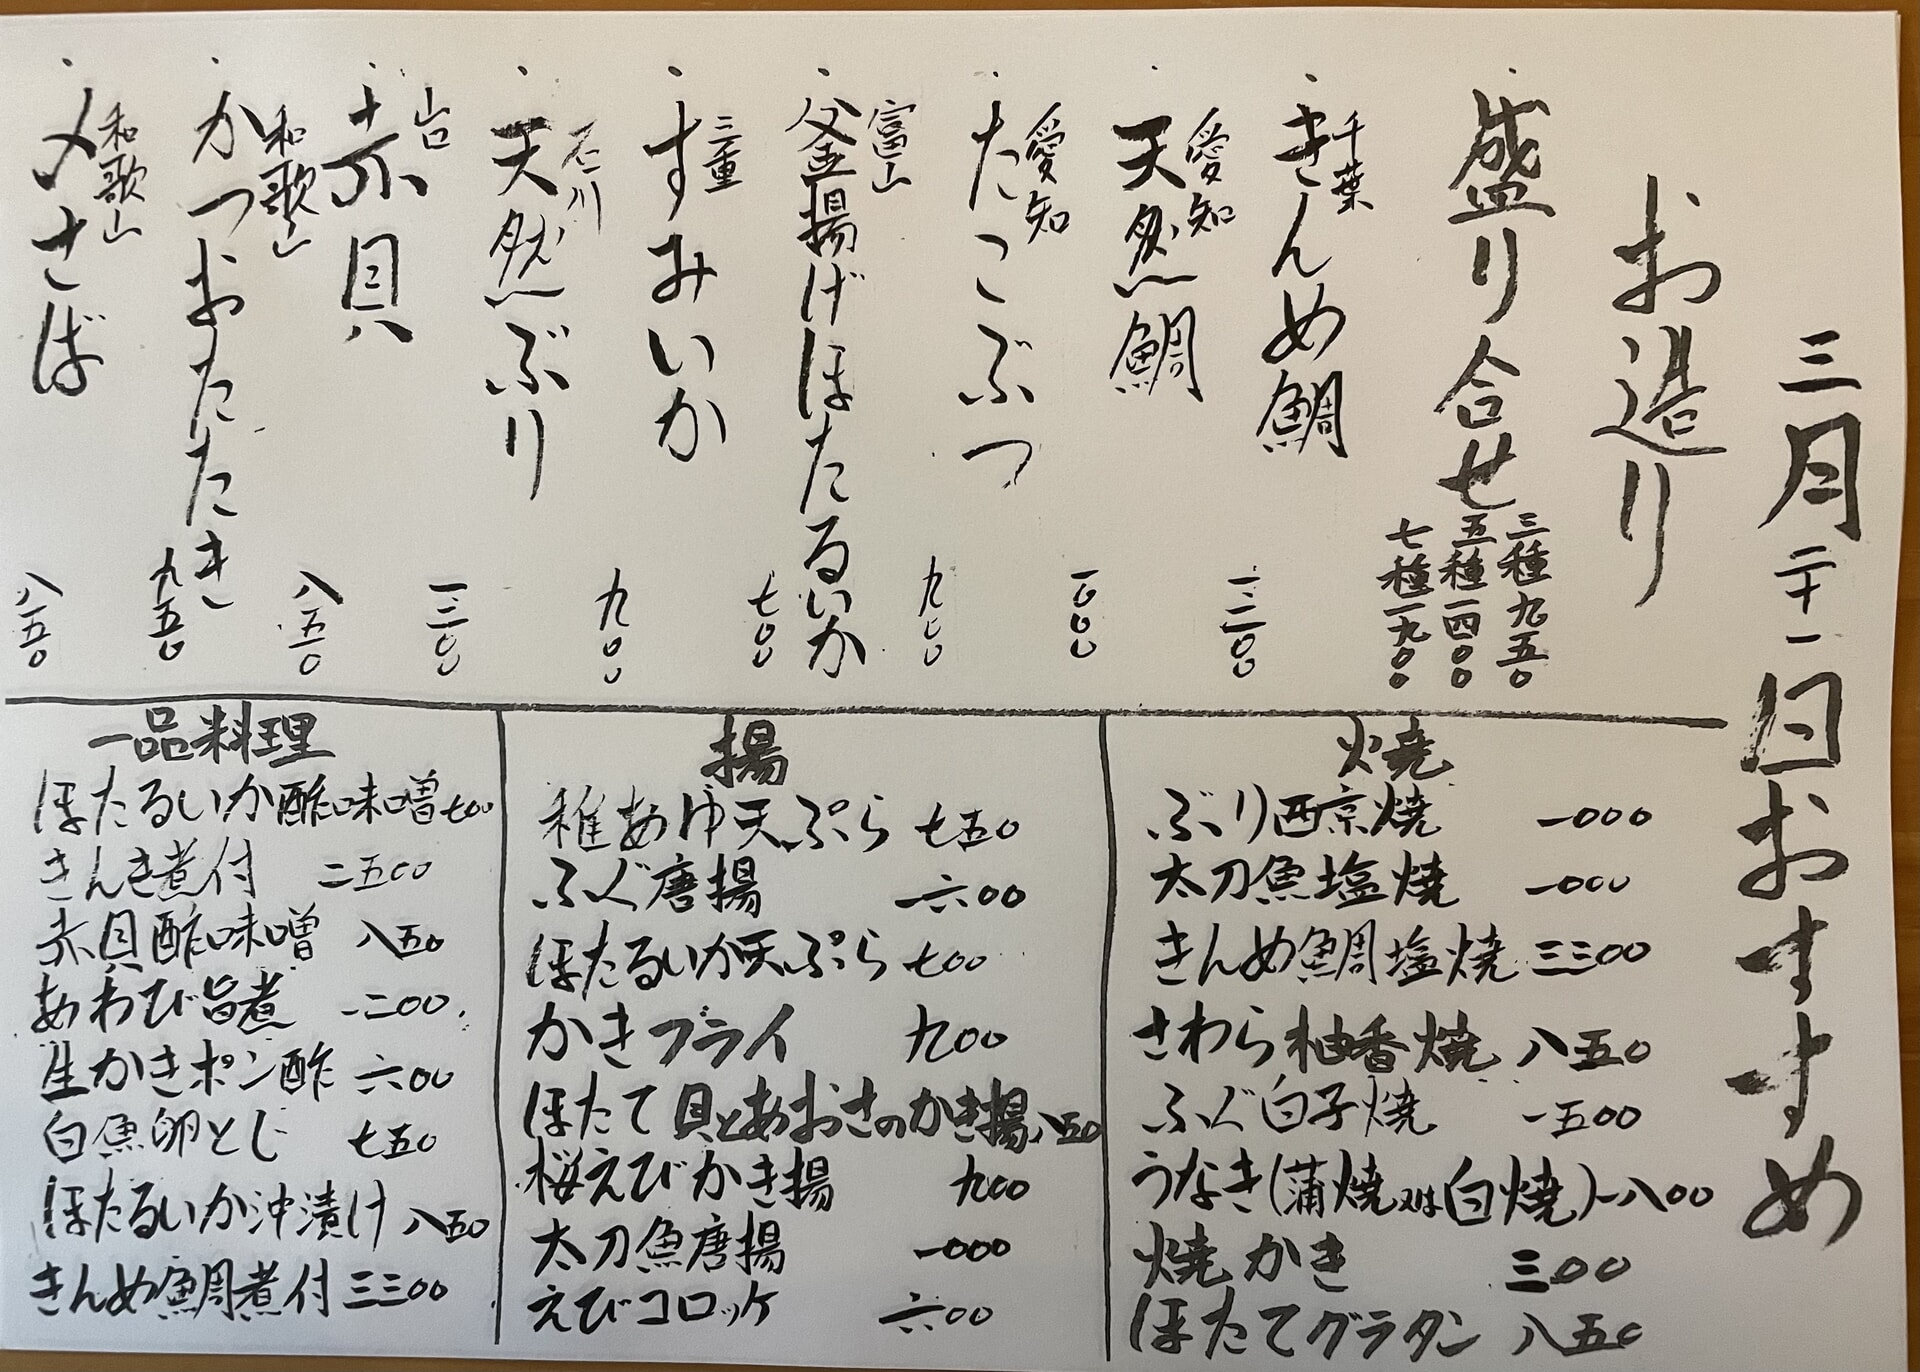 三月二十一日おすすめ
お造り
盛り合せ
三種九五〇
五種一四〇〇
七種一九〇〇
・きんめ鯛 千葉 一二〇〇
・天然鯛 愛知 一〇〇〇
・たこぶつ 愛知 九〇〇
・釜揚げほたるいか 富山 七〇〇
・すみいか 三重 九〇〇
・天然ぶり 石川 一三〇〇
・赤貝 山口 八五〇
・かつおたたき 和歌山 九五〇
・〆さば 和歌山 八五〇
焼
ぶり西京焼 一〇〇〇
太刀魚塩焼 一〇〇〇
きんめ鯛塩焼 三三〇〇
さわら柚香焼 八五〇
ふぐ白子焼 一五〇〇
うなき(蒲焼又は白焼)一八〇〇
焼かき 三〇〇
ほたてグラタン 八五〇
揚
稚あゆ天ぷら 七五〇
ふぐ唐揚 一六〇〇
ほたるいか天ぷら 七〇〇
かきフライ 九〇〇
ほたて貝とあおさのかき揚 八五〇
桜えびかき揚 九〇〇
太刀魚唐揚 一〇〇〇
えびコロッケ 六〇〇
一品料理
ほたるいか酢味噌 七〇〇
きんき煮付 二五〇〇
赤貝酢味噌 八五〇
あわび旨煮 一二〇〇
生かきポン酢 六〇〇
白魚卵とじ 七五〇
ほたるいか沖漬け 八五〇
きんめ鯛煮付 三三〇〇